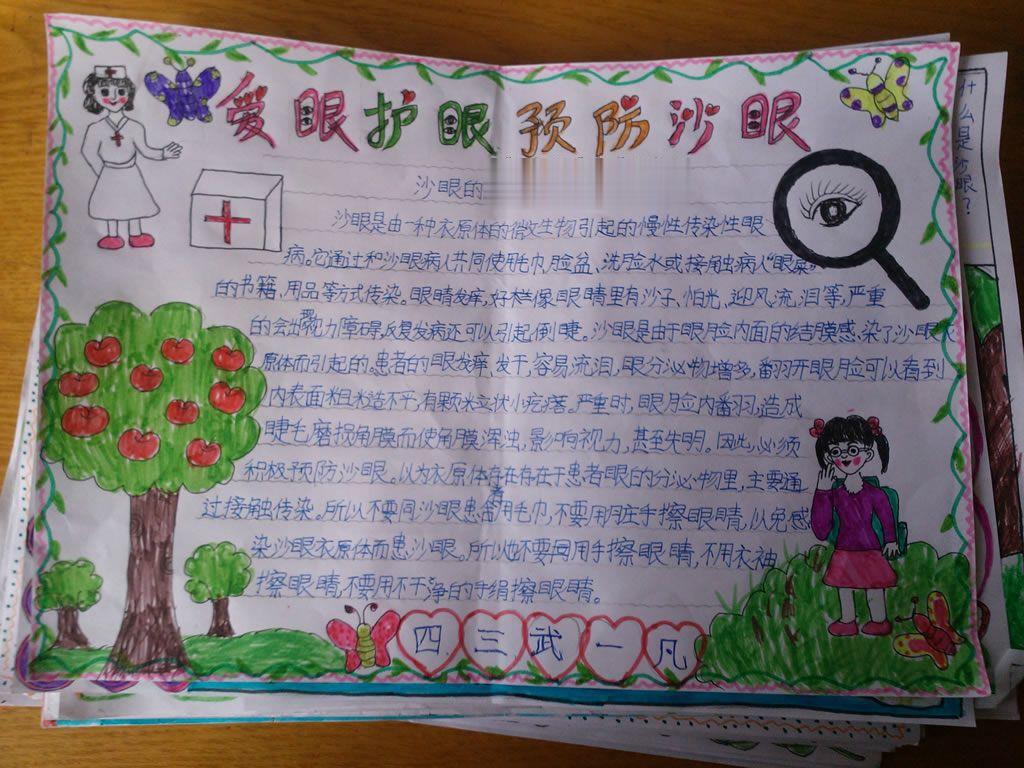 爱眼护眼预防沙眼
沙眼的
沙眼是由一种衣原体的微生物引起的慢性传染性眼
病。它通过和沙眼病人共同使用毛巾、脸盆、洗脸水或接触出病人"眼屎"
的书籍、用品等方式传染。眼睛发痒,好样像眼睛里有沙子、怕光、迎风流泪等,严重
的会出现视力障碍,反复发病还可以引起倒睫。沙眼是由于眼脸内面的结膜感染了沙眼衣
原体而引起的。患者的眼发痒、发干,容易流泪,眼分泌物增多,翻开眼脸可以看到
内表面粗糙不平,有颗粒立状小疙瘩。严重时,眼脸内翻,造成
睫毛磨损角膜而使角膜浑浊,影响视力,甚至失明。因此,必须
积极预防沙眼。以为衣原体存在存在于患者眼的分泌物里,主要通
过接触传染。所以不要同沙眼患者用毛巾,不要用脏手擦眼睛,以免感
染沙眼衣原体而患沙眼。所以也不要用手擦眼睛,不用衣袖
擦眼睛,不要用不干净的手绢擦眼睛。
四三武一凡
什么是沙眼?